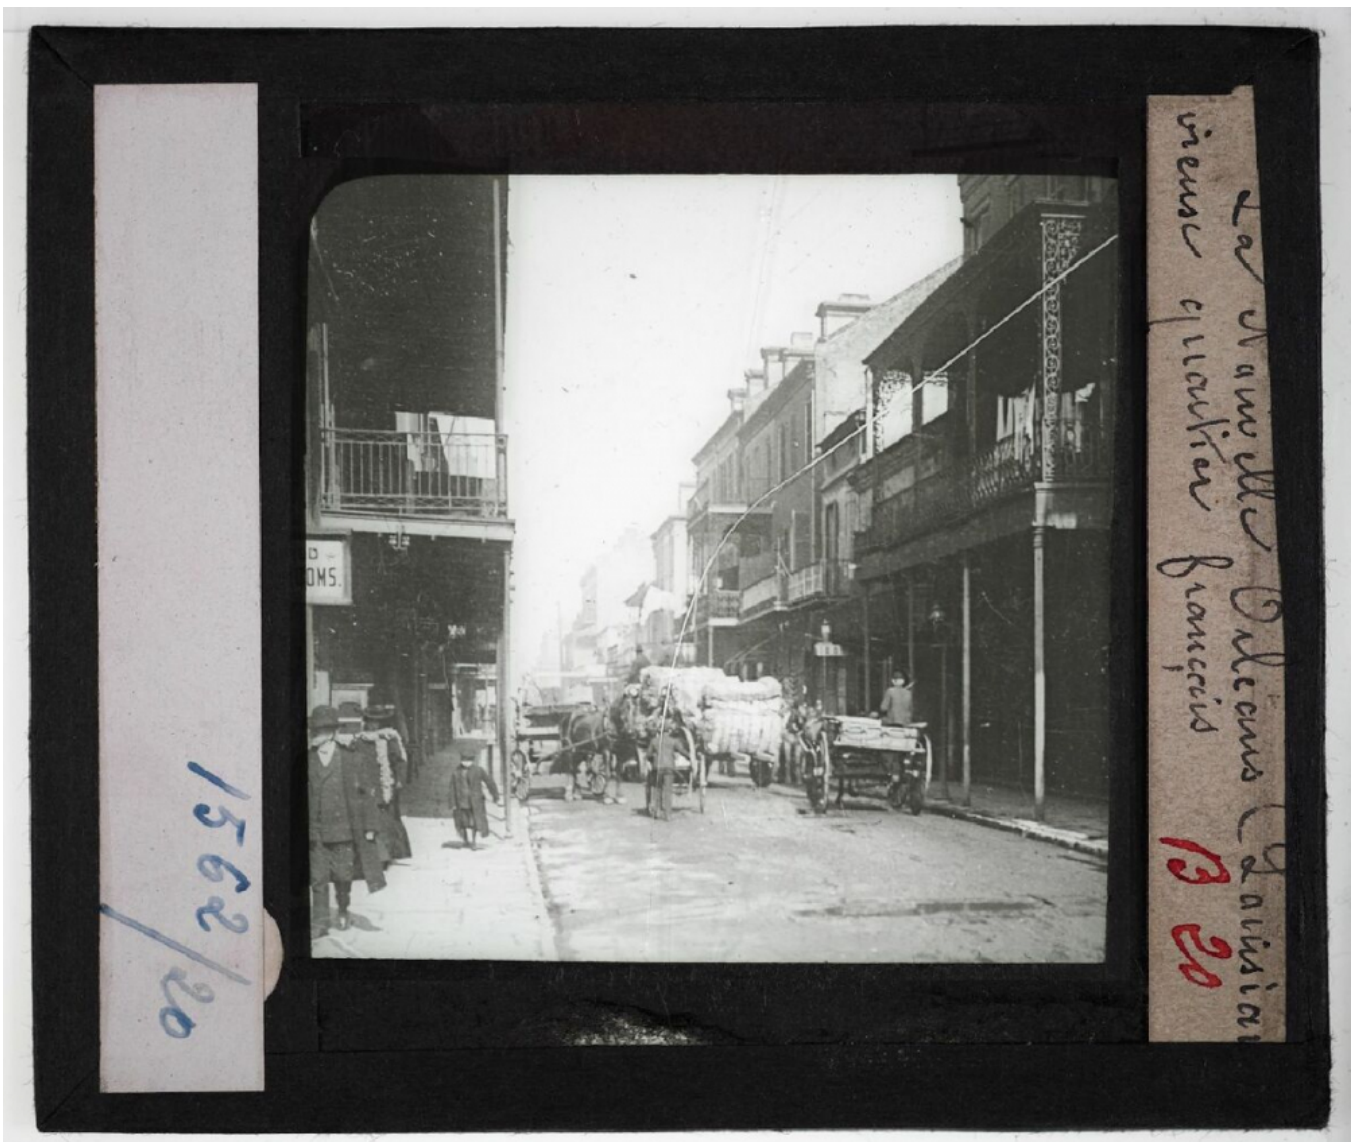 1562/20
D
OMS.
La Nouvelle Orléans (Louisian
vieux quartier français
B 20